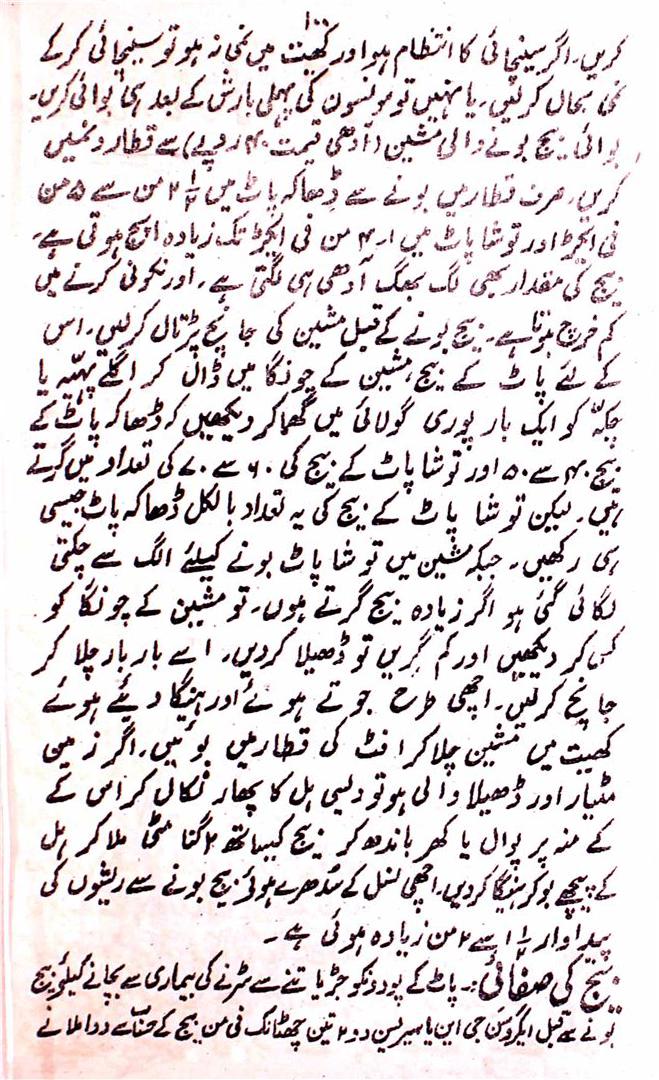 ۱۰۰
کریں۔ اگر سینچائی کا انتظام ہو اور کھیت میں نمی نہ ہو تو سینچائی کر کے
نمی بحال کر لیں۔ یا نہیں تو مونسون کی پہلی بارش کے بعد ہی بوائی کریں۔
بوائی بیج بونے والی مشین (آدھی قیمت ۴۰ روپے) سے قطاروں میں
کریں۔ صرف قطار میں بونے سے ڈھاکہ پاٹ میں ۲½ من سے ۵ من
فی ایکڑ اور توشا پاٹ میں ۴ من فی ایکڑ تک زیادہ اپج ہوتی ہے۔
بیج کی مقدار بھی لگ بھگ آدھی ہی لگتی ہے۔ اور نکونی کرنے میں
کم خرچ ہوتا ہے۔ بیج بونے کے قبل مشین کی جانچ پڑتال کر لیں۔ اس
کے لئے پاٹ کے بیج، مشین کے چونگا میں ڈال کر اگلے پہیہ یا
چکہ کو ایک بار پوری گولائی میں گھما کر دیکھیں کہ ڈھاکہ پاٹ کے
بیج ۴۰ سے ۵۰ اور توشا پاٹ کے بیج کی ۶۰ سے ۷۰ کی تعداد میں گرتے
ہیں۔ لیکن توشا پاٹ کے بیج کی یہ تعداد بالکل ڈھاکہ پاٹ جیسی
ہی رکھیں۔ جبکہ مشین میں توشا پاٹ بونے کیلئے الگ سے چکتی
لگائی گئی ہو اگر زیادہ بیج گرتے ہوں۔ تو مشین کے چونگا کو
کسا کر دیکھیں اور کم گریں تو ڈھیلا کر دیں۔ اسے بار بار چلا کر
جانچ کر لیں۔ اچھی طرح جوتے ہوئے اور ہنیگا دیئے ہوئے
کھیت میں مشین چلا کر ا فٹ کی قطار میں بوئیں۔ اگر زمین
مٹیار اور ڈھیلا والی ہو تو دیسی ہل کا پھار نکال کر اس کے
کے منہ پر پوال یا کھر باندھ کر بیج کیساتھ ۲ گنا مٹی ملا کر ہل
کے پیچھے بو کر ہنیگا کر دیں۔ اچھی نسل کے سدھرے ہوئی بیج بونے سے ریشوں کی
پیداوار ۱½ سے ۲ من زیادہ ہوئی ہے۔
بیج کی صفائی:۔ پاٹ کے پودونکو جڑ یا تنے سے سڑنے کی بیماری سے بچانے کیلئے بیج
بونے سے قبل ایگروسن جی این یا سیرسین دو ۲ تین چھٹانک فی من بیج کے حساب سے دوا ملانے